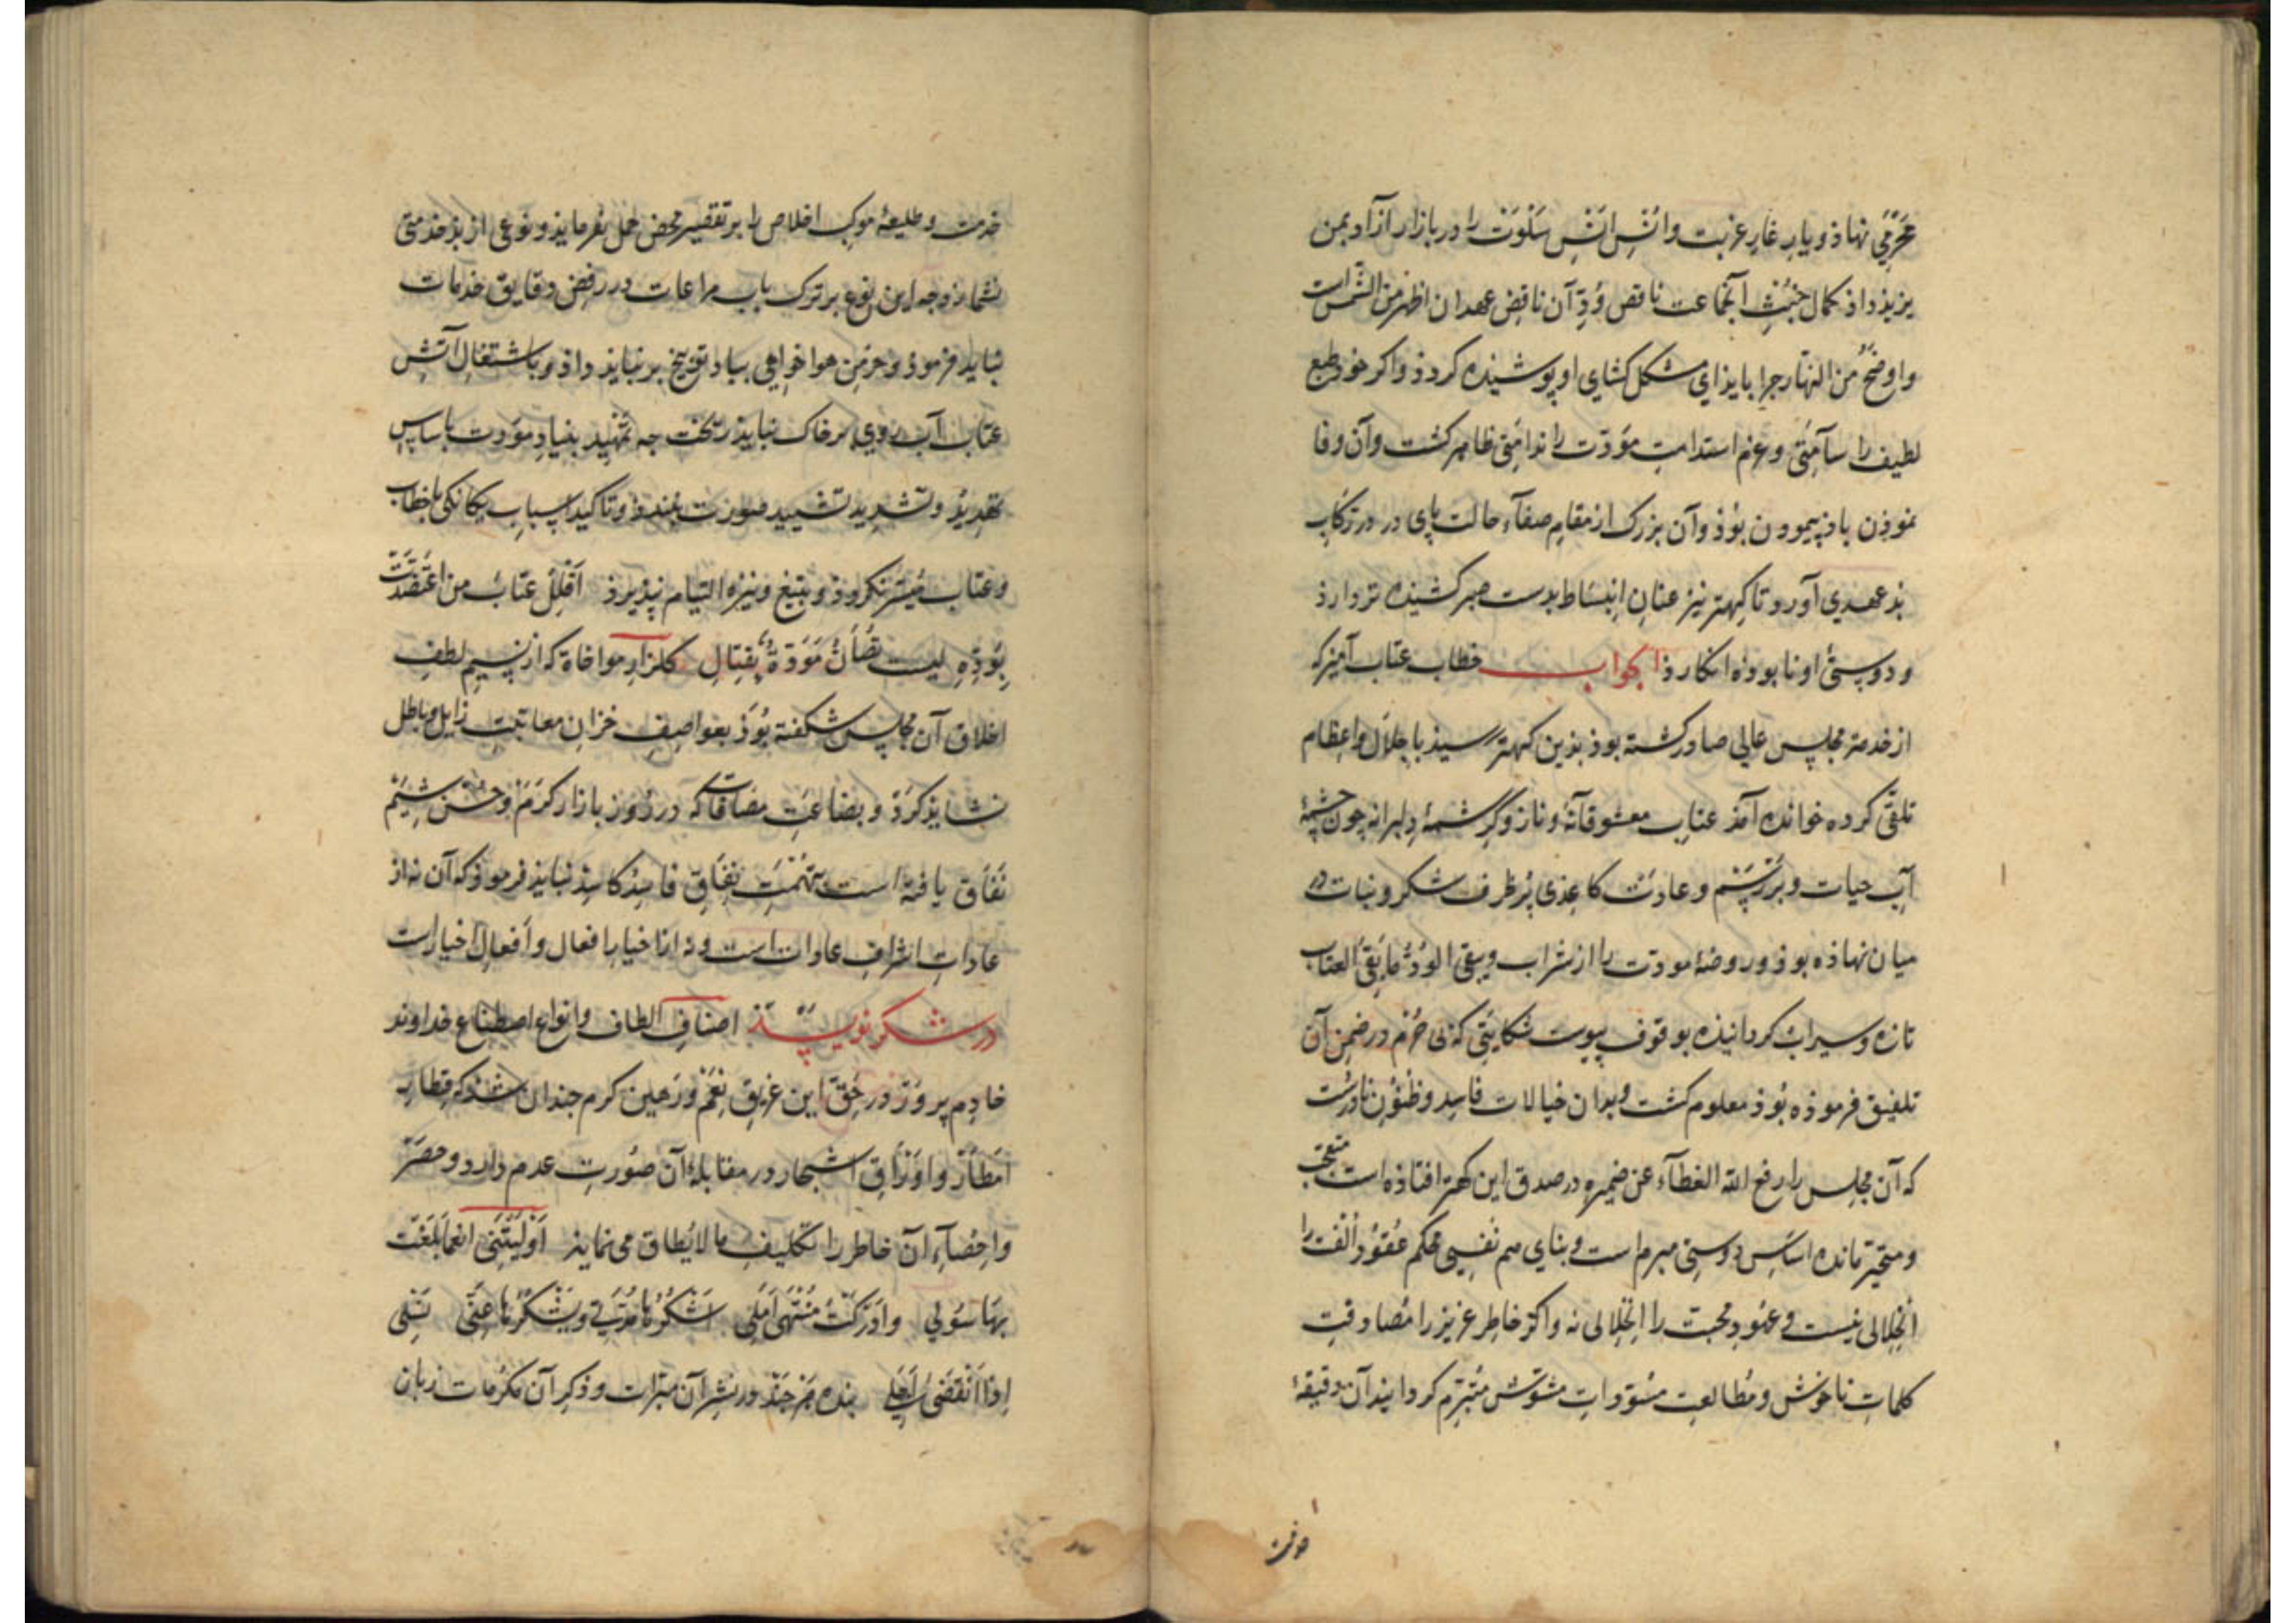 محرمی نهاذ و یار غار عزبت و انس انس سلوت را در بازار آزاد بمن
یزید داذ کمال خبث آنجماعت ناقص ود آن ناقض عهدان اظهر من الشمس است
و اوضح من النهار جرا باید رای مشکل کشای او پوشیذه کردذ و اکر خوذ طبع
لطیف را سآمتی و عزم استدامت مودت را ندامتی ظاهر کشت و آن وفا
نموذن باذ پیموودن بوذ و آن بزرک از مقام صفآء حالت پای در رکاب
بذ عهدی آورد تا کهتر نیز عنان انبساط بدست صبر کشیذه تر دارذ
و دوستی او نابوذه انکارذ الجواب خطاب عتاب آمیز که
از خدمت مجلس عالی صادر کشته بوذ بذین کهتر رسید باجلال و اعظام
تلقی کرده خوانده آمذ عتاب معشوقانه و ناز و کرشمۀ دلبرانه چون چشمۀ
آب حیات و بر رسم و عادت کاغذی پر ظرف شکر و نبات در
میان نهاذه بوذ و روضۀ مودت را از شراب ویبقی الود ما بقی العتاب
تازه و سیراب کردانیذه بوقوف پیوست شکایتی که بی جرم در ضمن آن
تلفیق فرموذه بوذ معلوم کشت و بدان خیالات فاسد و ظنون نادرست
که آن مجلس را رفع الله الغطآء عن ضمیره در صدق این کهتر افتاذه است متعجب
و متحیر مانده اساس دوستی مبرم است و بنای هم نفسی محکم عقود الفت را
انحلالی نیست و عهود محبت را اختلالی نه و اکر خاطر عزیز را مصادفت
کلمات ناخوش و مطالعت مسودات مشوش متبرم کردایند آن دقیقۀ
خدمت و طلیعۀ موکب اخلاص را بر تقصیر محض حمل نفرمایذ و نوعی از بذ خدمتی
نشمارذ وجه این نوع بر ترک باب مراعات در رفض دقایق خدمات
نبایذ فرموذ و خرمن هواخواهی بباد توبیخ بر نبایذ داذ و باشتغال آتش
عتاب آب روی بر خاک نبایذ ریخت جه تمهید بنیاد مودت باساس
تهدید و تشدید تشیید صورت نبندذ و تاکید اسباب یکانکی بخطاب
و عتاب میسر نکردوذ و بتیغ و نیزه التیام نپذیرذ اقلل عتاب من اعتضدت
بوده لیست تصان مودة بقتال کلزار موافاة که از نسیم لطف
اخلاق آن مجلس شکفته بوذ بعواصف خزان معاتبت زایل و باطل
نشایذ کرد و بضاعت مصافات که در روز بازار کرم و حسن شیم
نفاق یافته است بتهمت نفاق فاسد کاسد نبایذ فرموذ که آن نه از
عادات اشراف عادات است و نه از اخیار افعال و افعال اخیار است
در شکر نویسند اصناف الطاف و انواع اصطناع خداوند
خادم پرور در حق این غریق نعم و رهین کرم جندان شذ که قطار
امطار و اوراق اشجار در مقابلۀ آن صورت عدم دارد و حصر
و احصآء آن خاطر را تکلیف ما لا یطاق می نمایذ اولیتنی انعما بلغت
بها سولی و ادرکت منتهی املی اشکرها مدتی و یشکرها عنی بنی
اذا انقضی اجلی بنده هر جند در نشر آن مبرات و ذکر آن مکرمات زبان